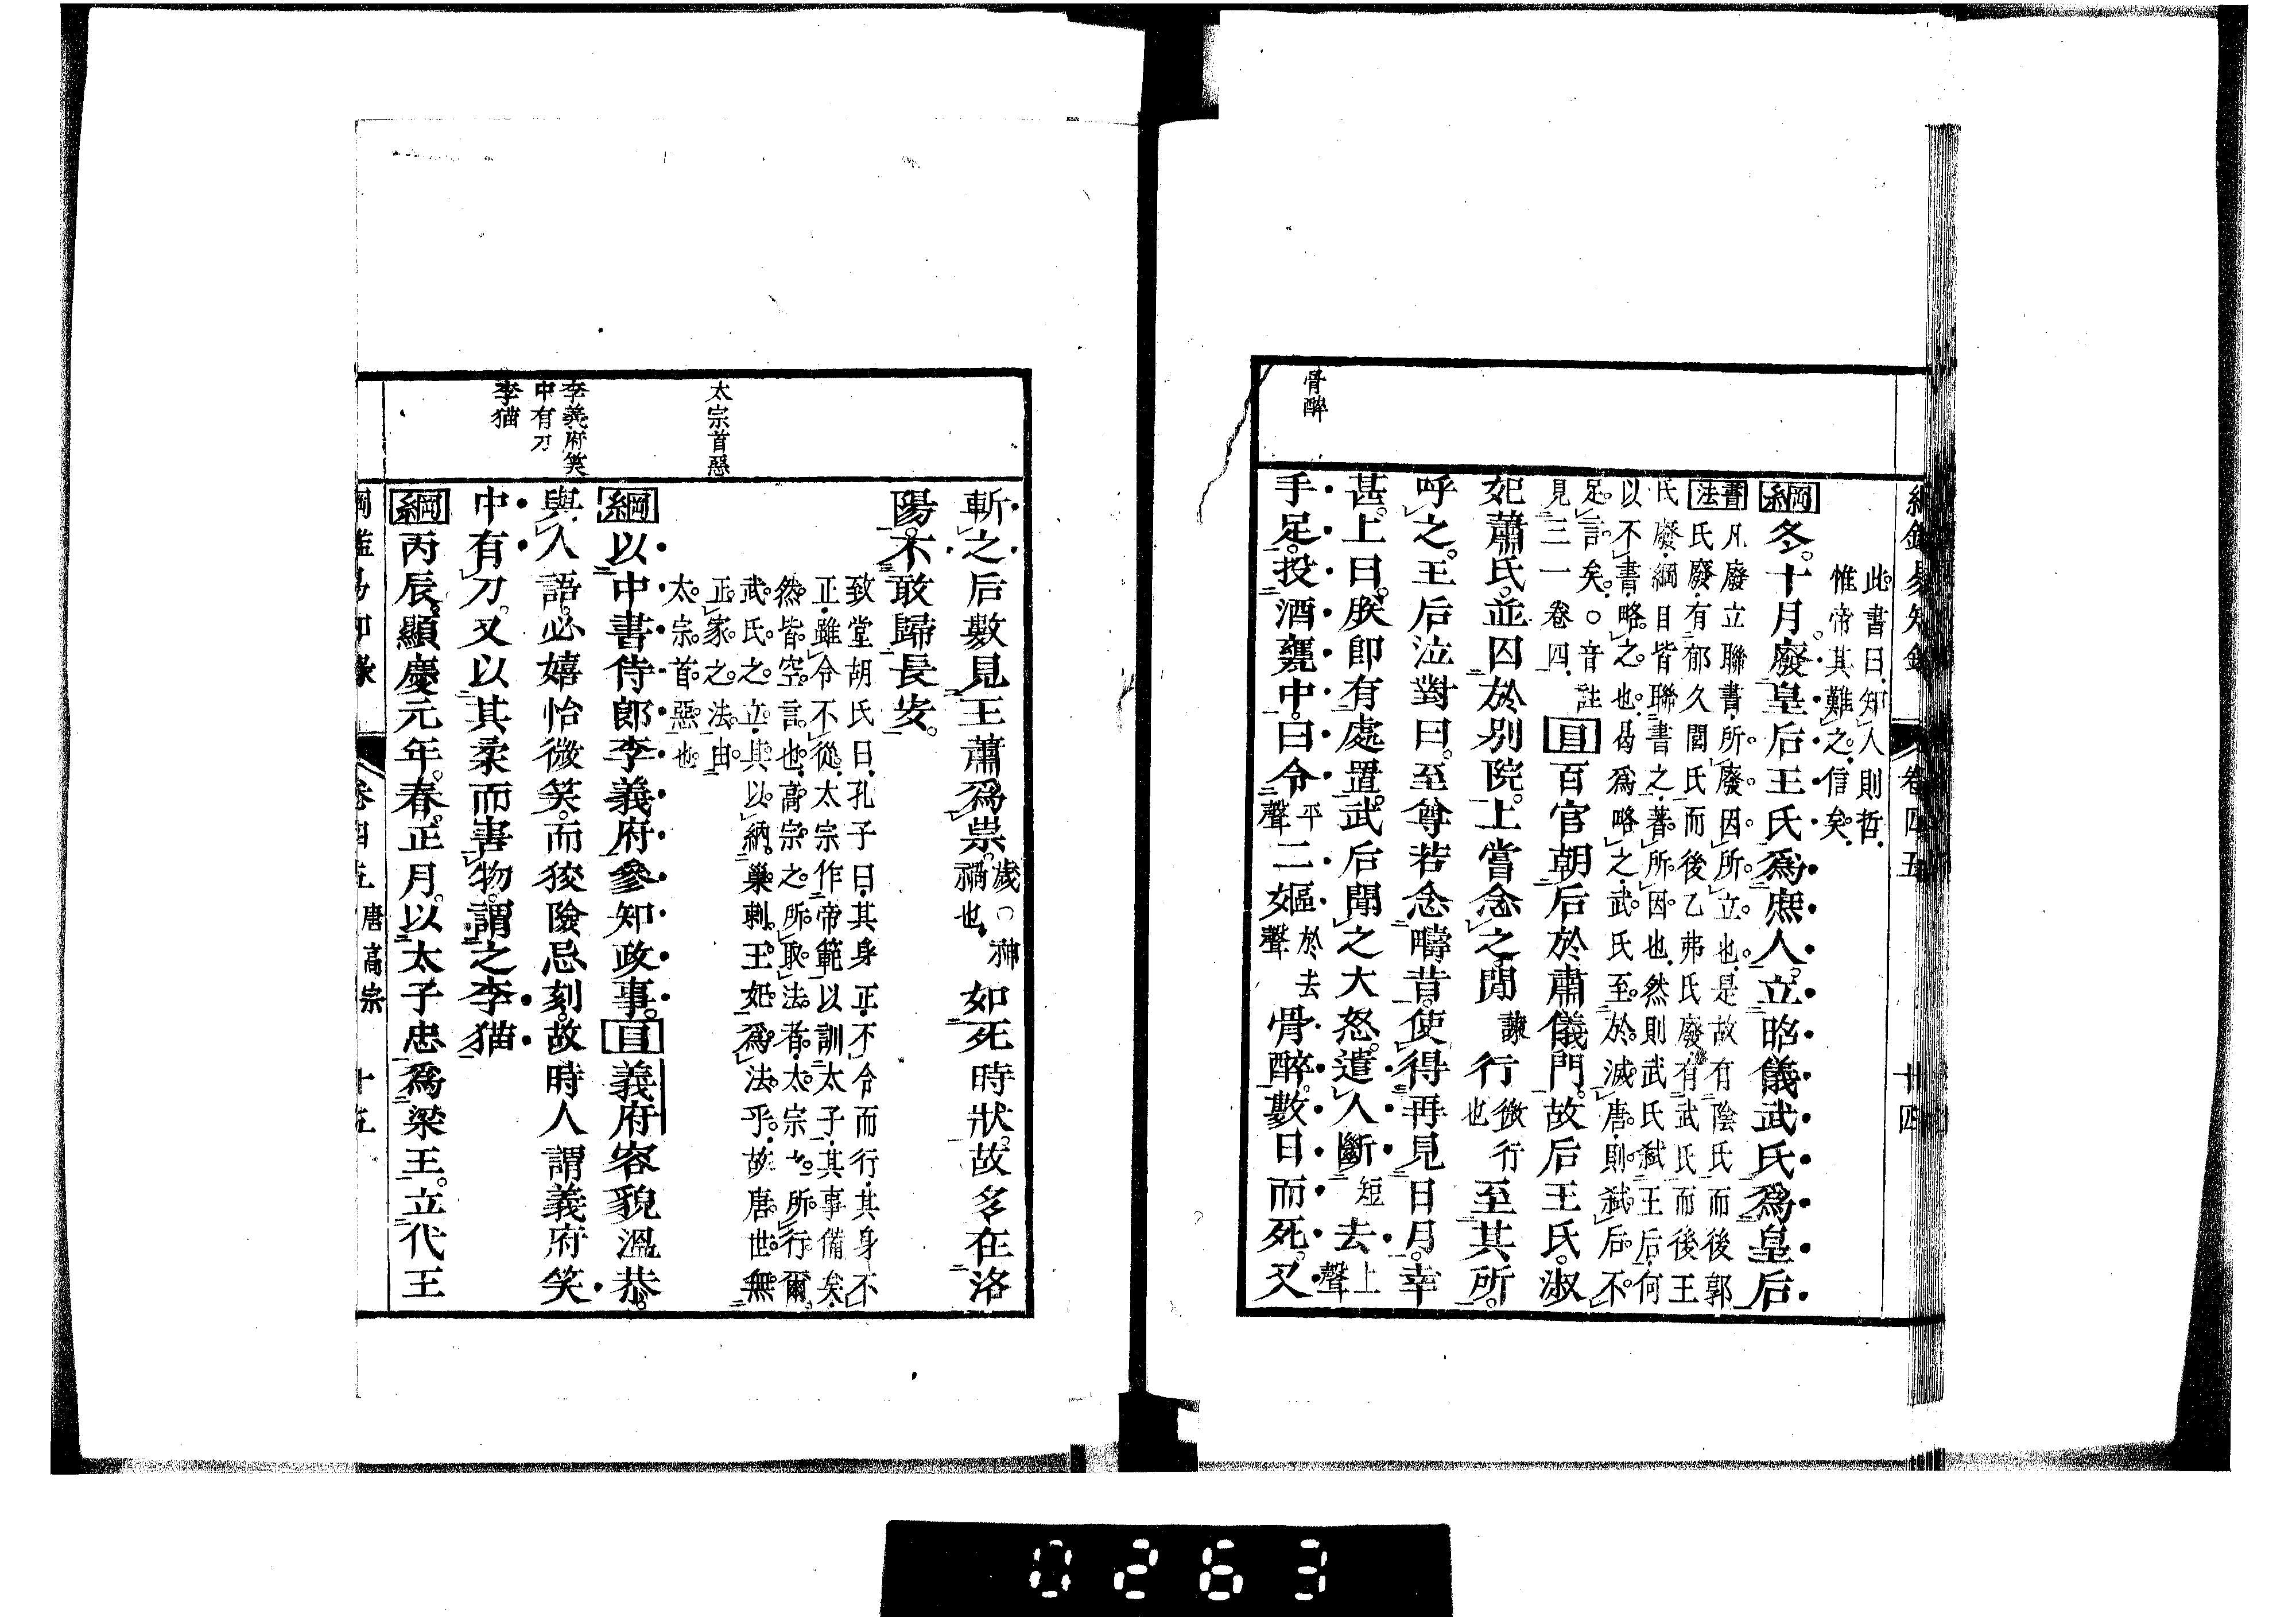 綱鑑易知錄 卷四五 廿四
此書曰知人則哲
惟帝其難之信矣
綱冬十月廢皇后王氏爲庶人立昭儀武氏爲皇后
書法凡廢立聯書所廢因所立也是故有陰氏而後郭
氏廢有郁久閭氏而後乙弗氏廢有武氏而後王
氏廢綱目皆聯書之著所因也然則武氏弒王后何
以不書略之也曷爲略之武氏至於滅唐則弒后不
足言矣○音註
見三一卷四
目百官朝后於肅儀門故后王氏淑
妃蕭氏並囚於別院上嘗念之閒諫行微行也至其所
呼之王后泣對曰至尊若念疇昔使得再見日月幸
甚上曰朕即有處置武后聞之大怒遣人斷短去上聲
手足投酒甕中曰令平聲二嫗於去聲骨醉數日而死又
骨醉
斬之后數見王蕭爲祟歲○神禍也如死時狀故多在洛
陽不敢歸長安
致堂胡氏曰孔子曰其身正不令而行其身不
正雖令不從太宗作帝範以訓太子其事備矣
然皆空言也高宗之所取法者太宗之所行爾
武氏之立其以納巢剌王妃爲法乎故唐世無
正家之法由
太宗首惡也
太宗首惡
綱以中書侍郎李義府參知政事目義府容貌溫恭
與人語必嬉怡微笑而狡險忌刻故時人謂義府笑
中有刀又以其柔而害物謂之李猫
李義府笑
中有刀
李猫
綱丙辰顯慶元年春正月以太子忠爲梁王立代王
綱鑑易知錄 卷四五 唐高宗 十五
0263